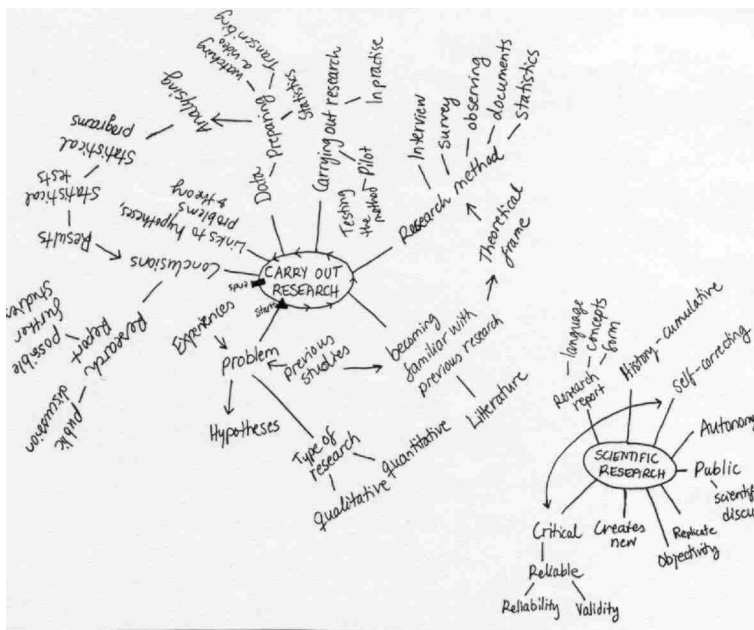 CARRY OUT
RESEARCH
starts
ends
Problem
Experiences
Hypotheses
previous
studies
Type of
research
qualitative
quantitative
becoming
familiar with
previous research
Litterature
Theoretical
frame
Research method
Interview
survey
observing
documents
statistics
Carrying out research
In practise
Pilot
Testing
the
method
Data
Preparing
Statistics
watching
a video
Transcribing
Analysing
Statistical
programs
Statistical
tests
Results
Conclusions
Links to hypotheses,
problems
& theory
Research
Report
possible
further
studies
public
discussion
SCIENTIFIC
RESEARCH
Research
report
language
concepts
form
History-cumulative
Self-correcting
Autonomy
Public
Replicate
Objectivity
Creates
new
Critical
Reliable
Reliability
Validity